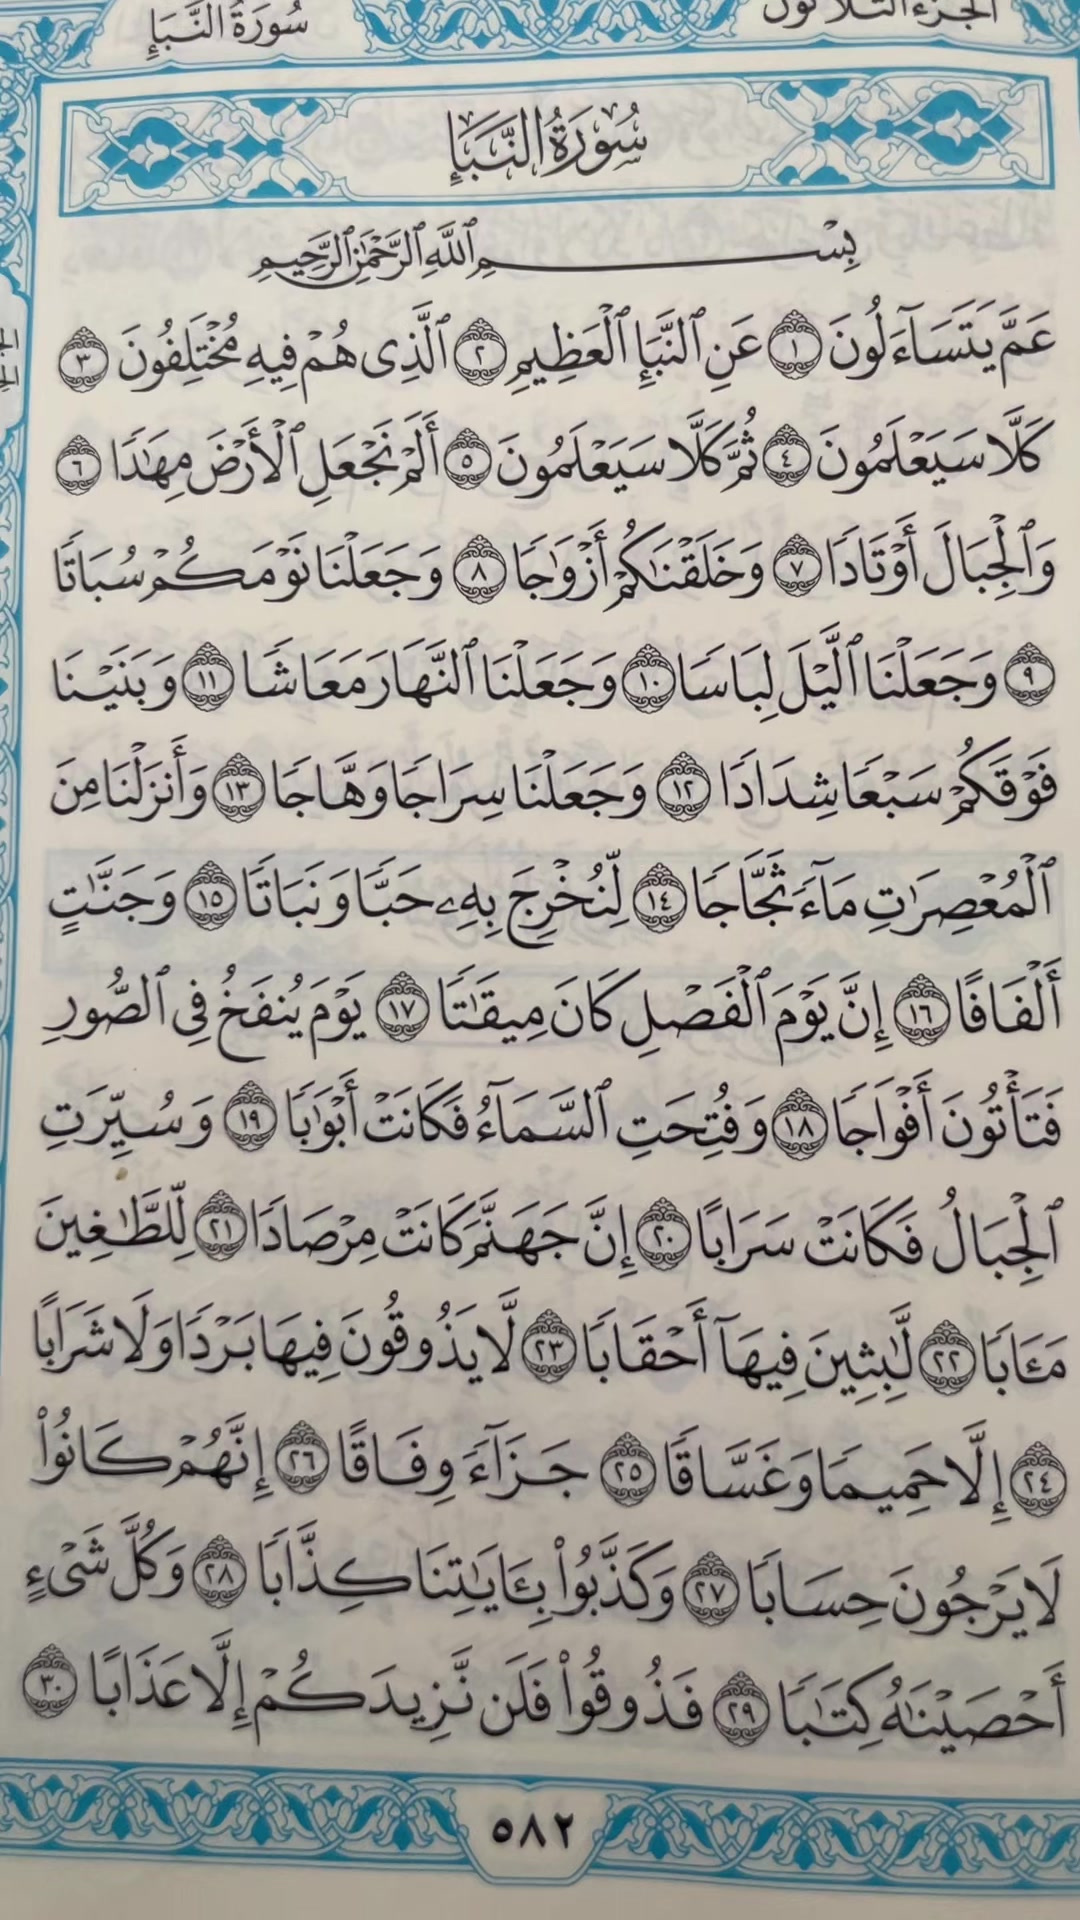 سُورَةُ النَّبَإِ
الجزء الثلاثون
سُورَةُ النَّبَإِ
بِسْمِ ٱللَّهِ ٱلرَّحْمَٰنِ ٱلرَّحِيمِ
عَمَّ يَتَسَآءَلُونَ ١ عَنِ ٱلنَّبَإِ ٱلْعَظِيمِ ٢ ٱلَّذِى هُمْ فِيهِ مُخْتَلِفُونَ ٣
كَلَّا سَيَعْلَمُونَ ٤ ثُمَّ كَلَّا سَيَعْلَمُونَ ٥ أَلَمْ نَجْعَلِ ٱلْأَرْضَ مِهَٰدًا ٦
وَٱلْجِبَالَ أَوْتَادًا ٧ وَخَلَقْنَٰكُمْ أَزْوَٰجًا ٨ وَجَعَلْنَا نَوْمَكُمْ سُبَاتًا
٩ وَجَعَلْنَا ٱلَّيْلَ لِبَاسًا ١٠ وَجَعَلْنَا ٱلنَّهَارَ مَعَاشًا ١١ وَبَنَيْنَا
فَوْقَكُمْ سَبْعًا شِدَادًا ١٢ وَجَعَلْنَا سِرَاجًا وَهَّاجًا ١٣ وَأَنزَلْنَا مِنَ
ٱلْمُعْصِرَٰتِ مَآءً ثَجَّاجًا ١٤ لِّنُخْرِجَ بِهِۦ حَبًّا وَنَبَاتًا ١٥ وَجَنَّٰتٍ
أَلْفَافًا ١٦ إِنَّ يَوْمَ ٱلْفَصْلِ كَانَ مِيقَٰتًا ١٧ يَوْمَ يُنفَخُ فِى ٱلصُّورِ
فَتَأْتُونَ أَفْوَاجًا ١٨ وَفُتِحَتِ ٱلسَّمَآءُ فَكَانَتْ أَبْوَٰبًا ١٩ وَسُيِّرَتِ
ٱلْجِبَالُ فَكَانَتْ سَرَابًا ٢٠ إِنَّ جَهَنَّمَ كَانَتْ مِرْصَادًا ٢١ لِّلطَّٰغِينَ
مَـَٔابًا ٢٢ لَّٰبِثِينَ فِيهَآ أَحْقَابًا ٢٣ لَّا يَذُوقُونَ فِيهَا بَرْدًا وَلَا شَرَابًا
٢٤ إِلَّا حَمِيمًا وَغَسَّاقًا ٢٥ جَزَآءً وِفَاقًا ٢٦ إِنَّهُمْ كَانُوا۟
لَا يَرْجُونَ حِسَابًا ٢٧ وَكَذَّبُوا۟ بِـَٔايَٰتِنَا كِذَّابًا ٢٨ وَكُلَّ شَىْءٍ
أَحْصَيْنَٰهُ كِتَٰبًا ٢٩ فَذُوقُوا۟ فَلَن نَّزِيدَكُمْ إِلَّا عَذَابًا ٣٠
٥٨٢